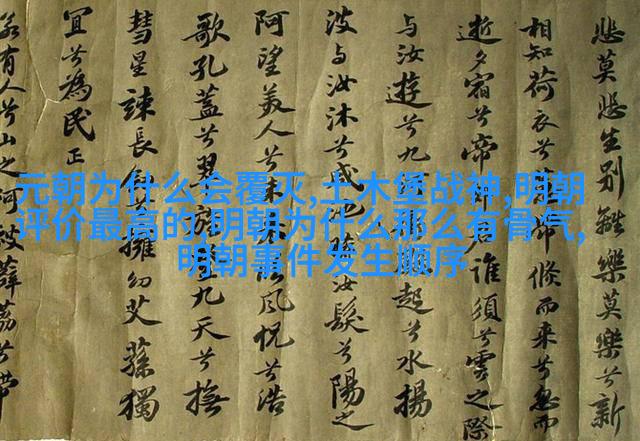 元朝为什么会覆灭,土木堡战神,明朝
评价最高的,明朝为什么那么有骨气,
明朝事件发生顺序
悲莫悲生别離樂莫樂兮新
相知荷衣兮帶倏而來兮忽而
逝夕宿兮帝君誰須兮雲之際
与汝遊兮九起兮水揚
波与汝沐兮咸池汝髮兮陽之
阿望美人兮未風怳兮浩
歌孔蓋兮翠九天兮撫
彗星竦長擁幼艾蓀獨
宜兮為民正
若有人兮山之阿被薜荔兮帶